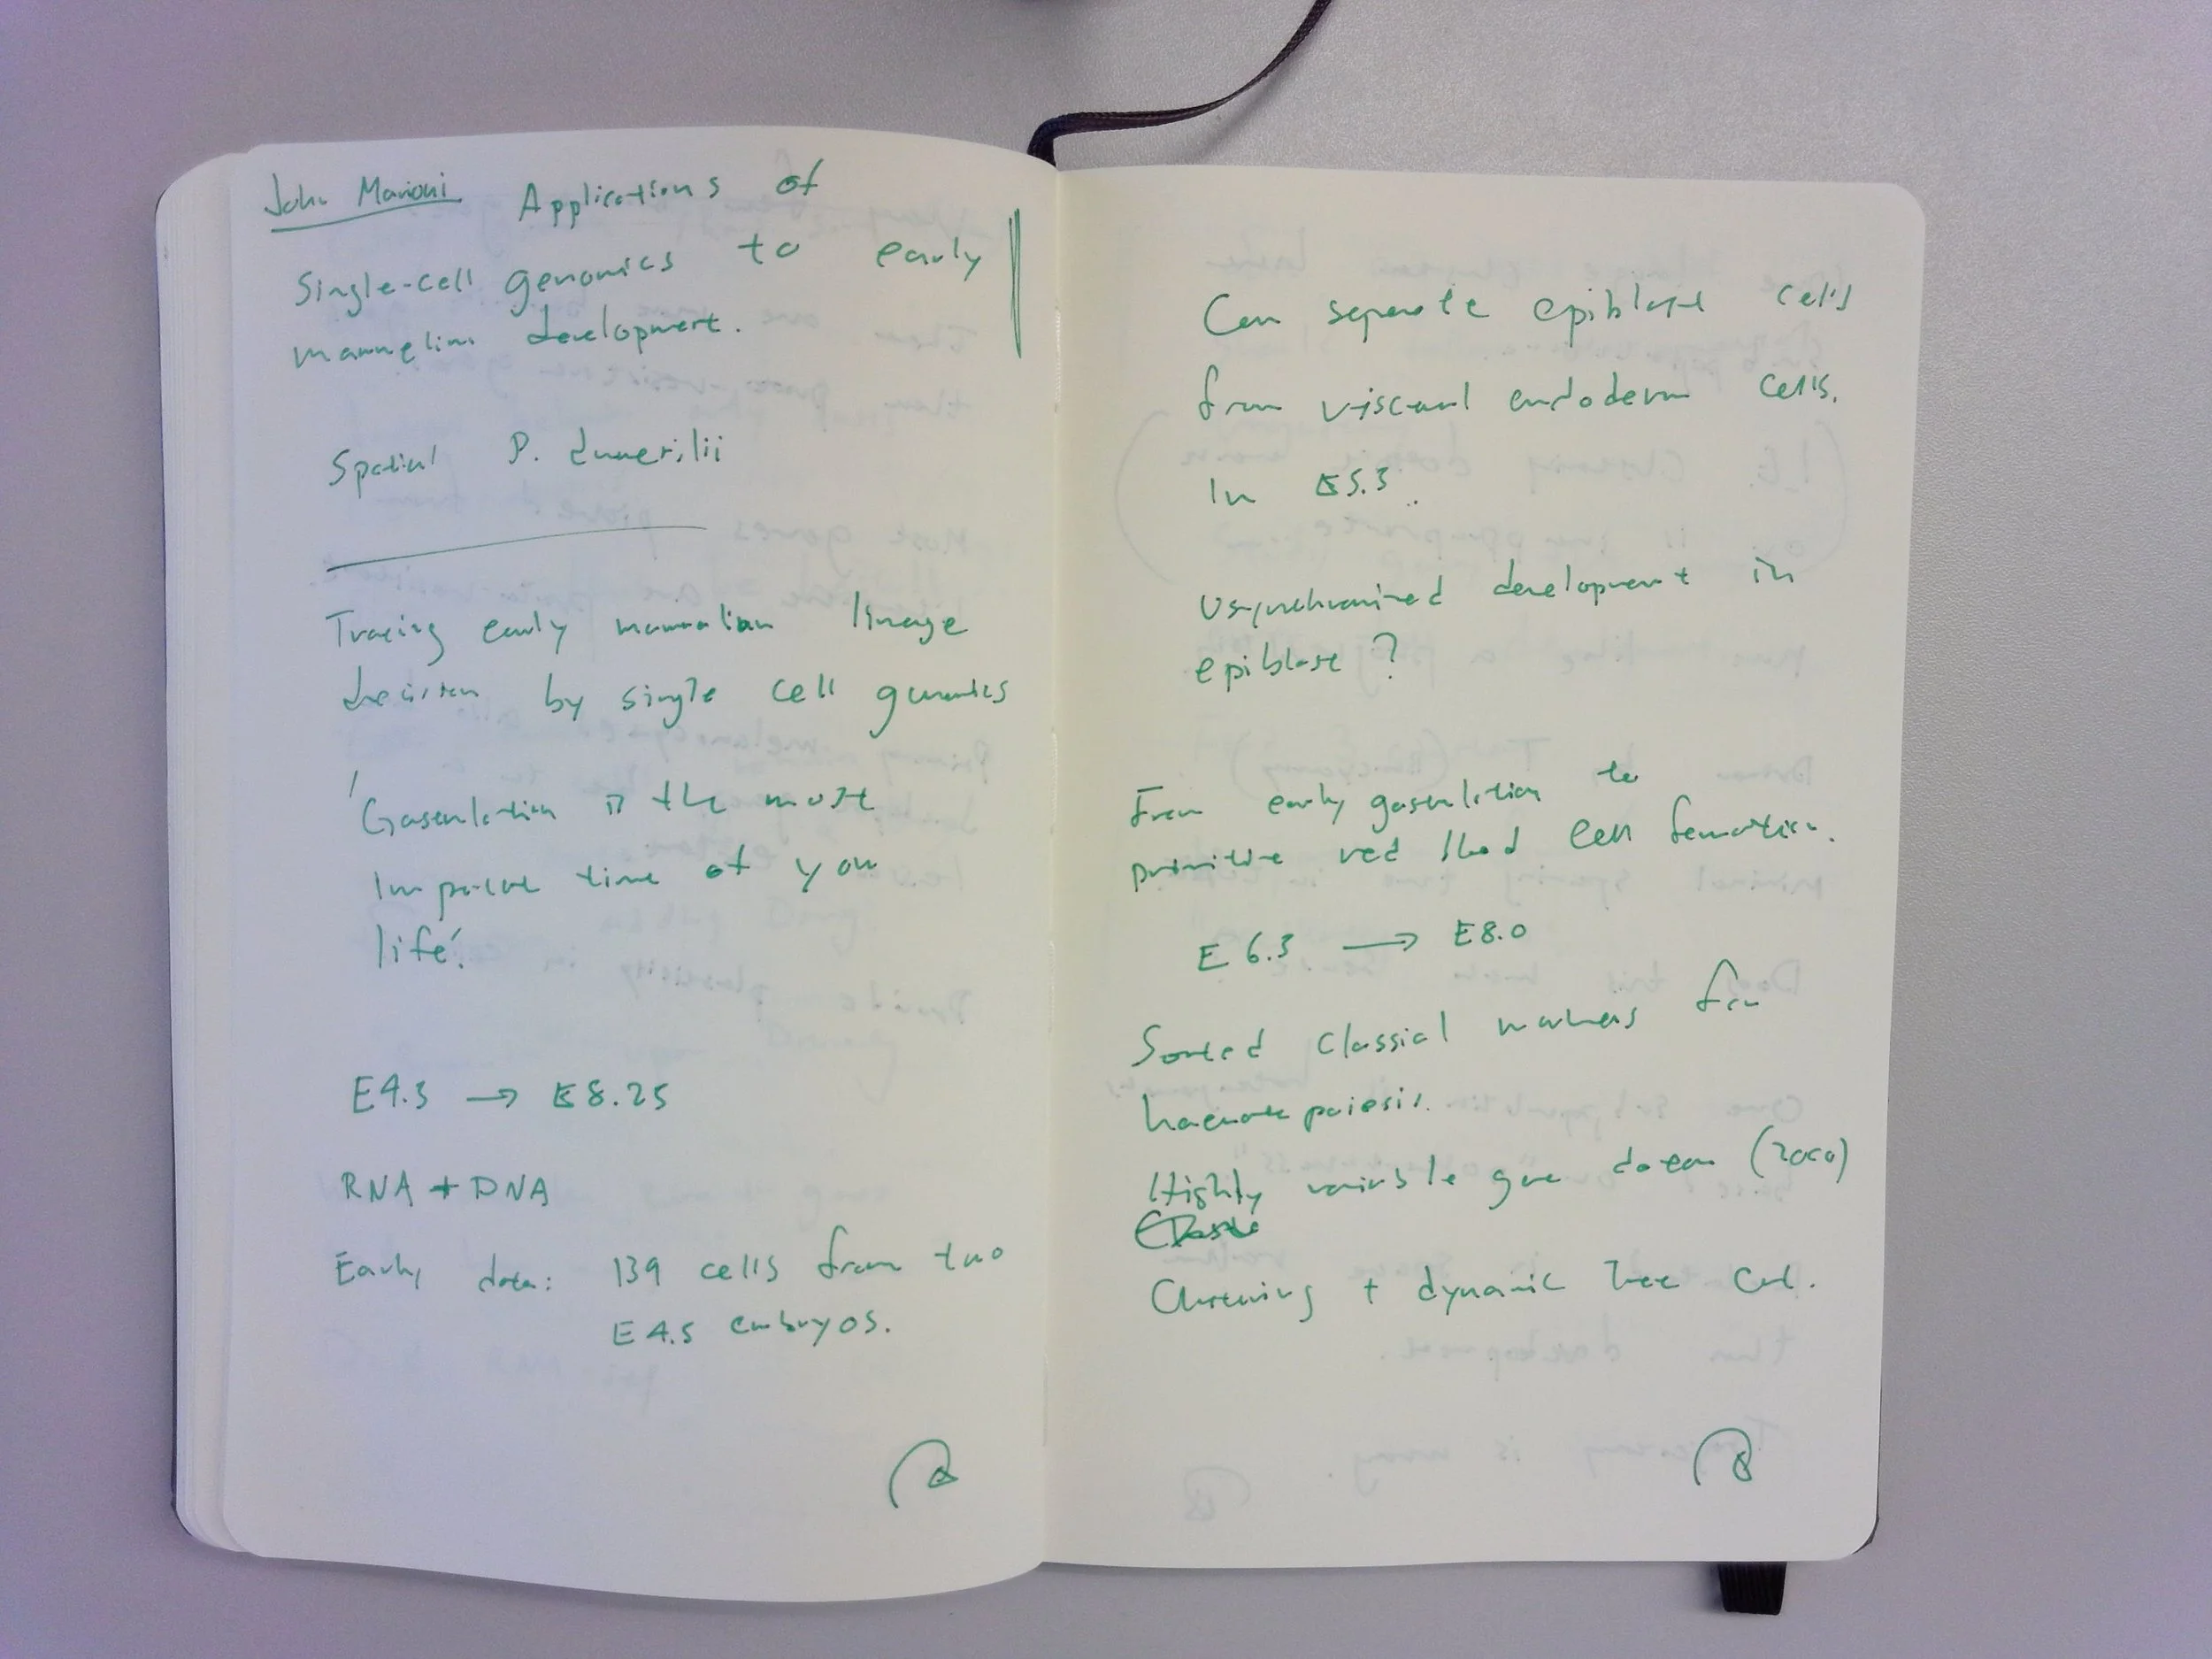 John Marioni Applications of
Single-cell genomics to early
mammalian development.
Spatial P. dumerilii
Tracing early mammalian lineage
decision by single cell genomics
'Gastrulation is the most
important time of your
life'.
E4.5 → E8.25
RNA + DNA
Early data: 139 cells from two
E4.5 embryos.
Can separate epiblast cells
from visceral endoderm cells.
In E5.5.
Usynchronized development in
epiblast?
From early gastrulation to
primitive red blood cell formation.
E 6.5 → E8.0
Sorted classical markers for
haematopoiesis.
Highly variable gene (2000)
Clustering + dynamic tree cut.